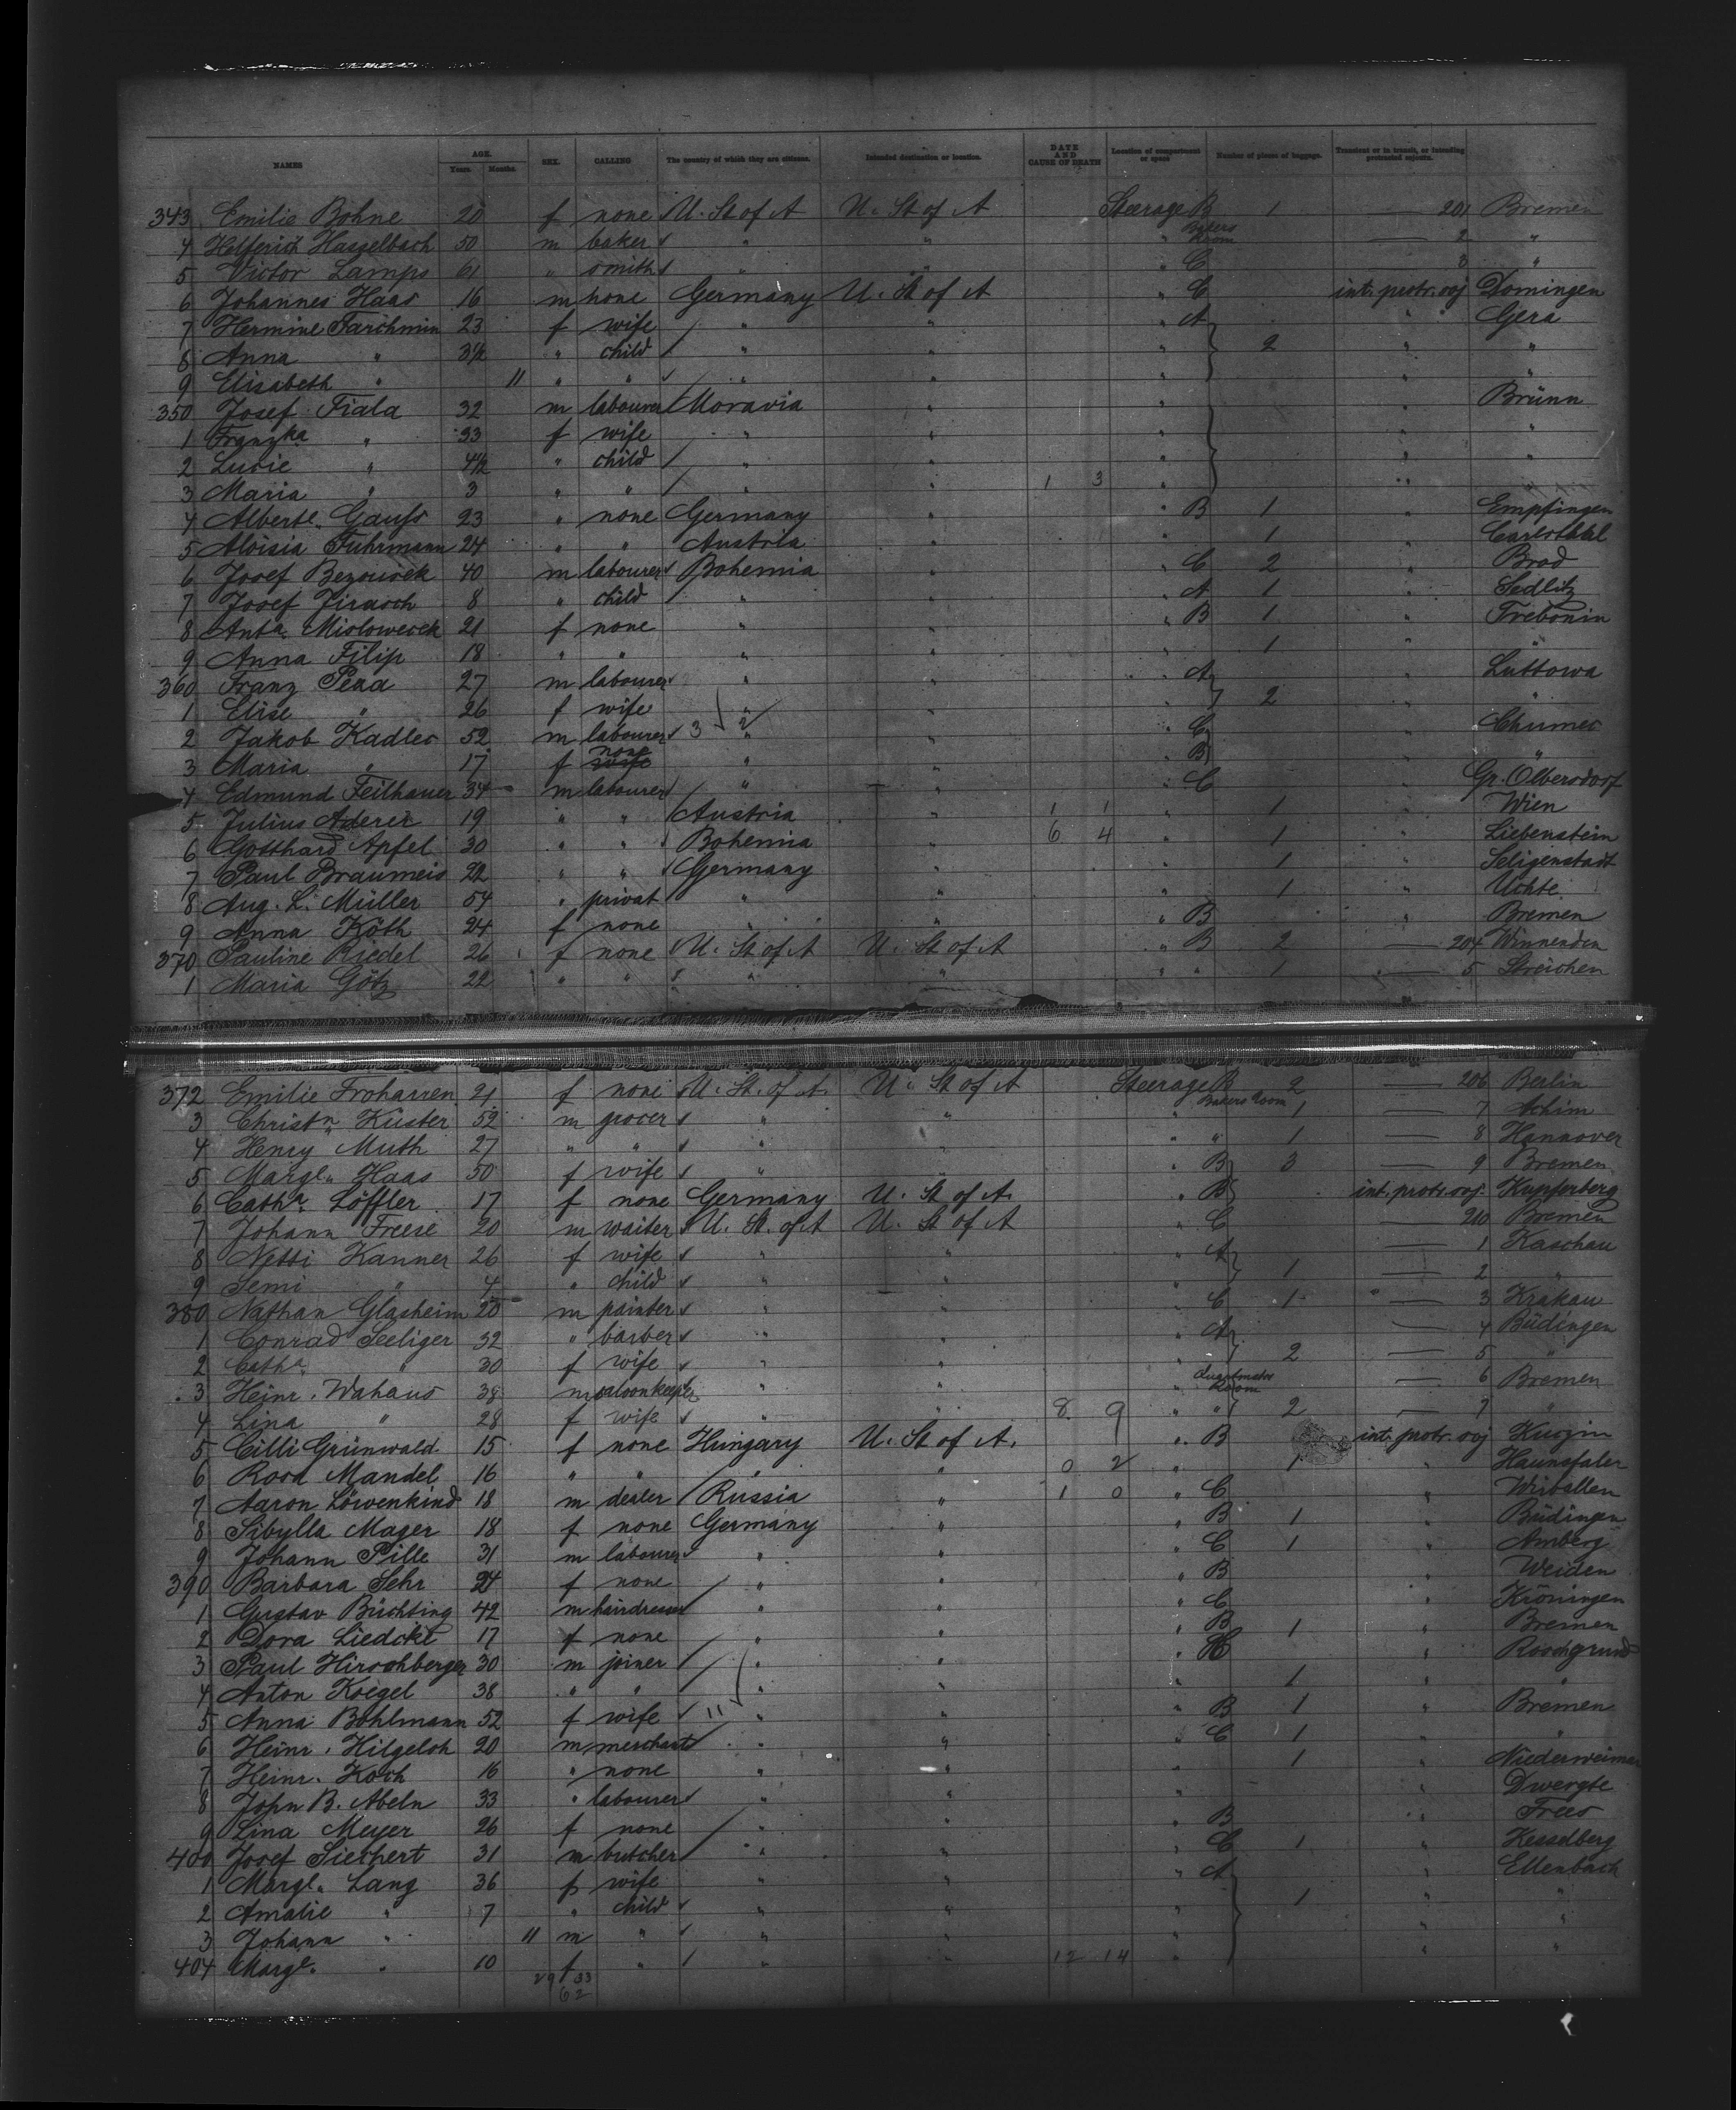 NAMES AGE. Years. Months. SEX. CALLING The country of which they are citizens. Intended destination or location. DATE AND CAUSE OF DEATH Location of compartment or space Number of pieces of baggage. Transient or in transit, or intending protracted sojourn.
343 Emilie Bohne 20 f none U. St of A U. St of A Steerage B 1 — 201 Bremen
4 Helferich Hasselbach 50 m baker " " " Bakers Room — 2 "
5 Victor Lamps 61 " smith " " " C 3 "
6 Johannes Haas 16 m none Germany U. St of A " C int. protr. soj Domingen
7 Hermine Tarchmin 23 f wife " " " A " Gera
8 Anna " 3½ " child " " " 2 " "
9 Elisabeth " 11 " " " " " " "
350 Josef Fiala 32 m labourer Moravia " " " Brünn
1 Franzka " 33 f wife " " " " "
2 Lucie " 4½ " child " " " " "
3 Maria " 3 " " " " 1 3 " " "
4 Albert. Gauss 23 " none Germany " " B 1 " Empfingen
5 Aloisia Fuhrmann 24 " " Austria " " 1 " Carlsthal
6 Josef Bezousek 40 m labourer Bohemia " " C 2 " Brod
7 Josef Jirasch 8 " child " " " A 1 " Sedlitz
8 Anta Mislowecek 21 f none " " " B 1 " Trebonin
9 Anna Filip 18 " " " " " 1 " "
360 Franz Peza 27 m labourer " " " A " Luttowa
1 Elise " 26 f wife " " " 2 " "
2 Jakob Kadlec 52 m labourer 3 2 " " " C " Chumec
3 Maria " 17 f none wife " " " B "
4 Edmund Feilhauer 34 m labourer " " " C " Gr. Olbersdorf
5 Julius Aderer 19 " " Austria " 1 1 " 1 " Wien
6 Gotthard Apfel 30 " " Bohemia " 6 4 " 1 " Liebenstein
7 Paul Braumeis 22 " " Germany " " 1 " Seligenstadt
8 Aug. L. Müller 54 " privat " " " 1 " Uchte
9 Anna Köth 24 f none " " " B " Bremen
370 Pauline Riedel 26 f none U. St of A U. St of A " B 2 — 204 Winnenden
1 Maria Götz 22 " " " " " " 1 — 5 Streichen
372 Emilie Froharren 21 f none U. St. of A. U. St of A Steerage B 2 — 206 Berlin
3 Christn Küster 52 m grocer " " " Bakers Room 1 — 7 Achim
4 Henry Muth 27 " " " " " " 1 — 8 Hannover
5 Margt. Haas 50 f wife " " " B 3 — 9 Bremen
6 Catha Löffler 17 f none Germany U. St of A. " B int. protr. soj. Kupferberg
7 Johann Freese 20 m waiter U. St. of A U. St of A " C — 210 Bremen
8 Netti Kanner 26 f wife " " " A — 1 Kaschau
9 Semi " 4 " child " " " 1 — 2 "
380 Nathan Glasheim 20 m painter " " " C 1 — 3 Krakau
1 Conrad Seeliger 32 " barber " " " A — 4 Büdingen
2 Catha " 30 f wife " " " 2 — 5 "
3 Heinr. Wahaus 38 m saloonkeeper " " " Room — 6 Bremen
4 Lina " 28 f wife " " 8 9 " " 2 — 7 "
5 Cilli Grünwald 15 f none Hungary U. St of A. " B int. protr. soj
6 Rosa Mandel 16 " " " " 0 2 " 1 "
7 Aaron Löwenkind 18 m dealer Russia " 1 0 " C " Wirballen
8 Sibylla Mager 18 f none Germany " " B 1 " Büdingen
9 Johann Pille 31 m labourer " " " C 1 " Amberg
390 Barbara Sehr 24 f none " " " B " Weiden
1 Gustav Büchting 42 m hairdresser " " " C " Kröningen
2 Dora Liedcke 17 f none " " " B 1 " Bremen
3 Paul Hirschberger 30 m joiner " " " C " Roschgrund
4 Anton Koegel 38 " " " " " 1 " "
5 Anna Bohlmann 52 f wife 11 " " " B 1 " Bremen
6 Heinr. Hilgeloh 20 m merchant " " " C 1 " "
7 Heinr. Koch 16 " none " " " 1 " Niederweimar
8 John B. Abeln 33 " labourer " " " " Dwergte
9 Lina Meyer 26 f none " " " B " Frees
400 Josef Siechert 31 m butcher " " " C 1 " Kesselberg
1 Margt. Lang 36 f wife " " " A " Ellenbach
2 Amalie " 7 " child " " " 1 " "
3 Johann " 11 m " " " " " "
404 Margt. " 10 f " " " 12 14 " " "
29 33
62